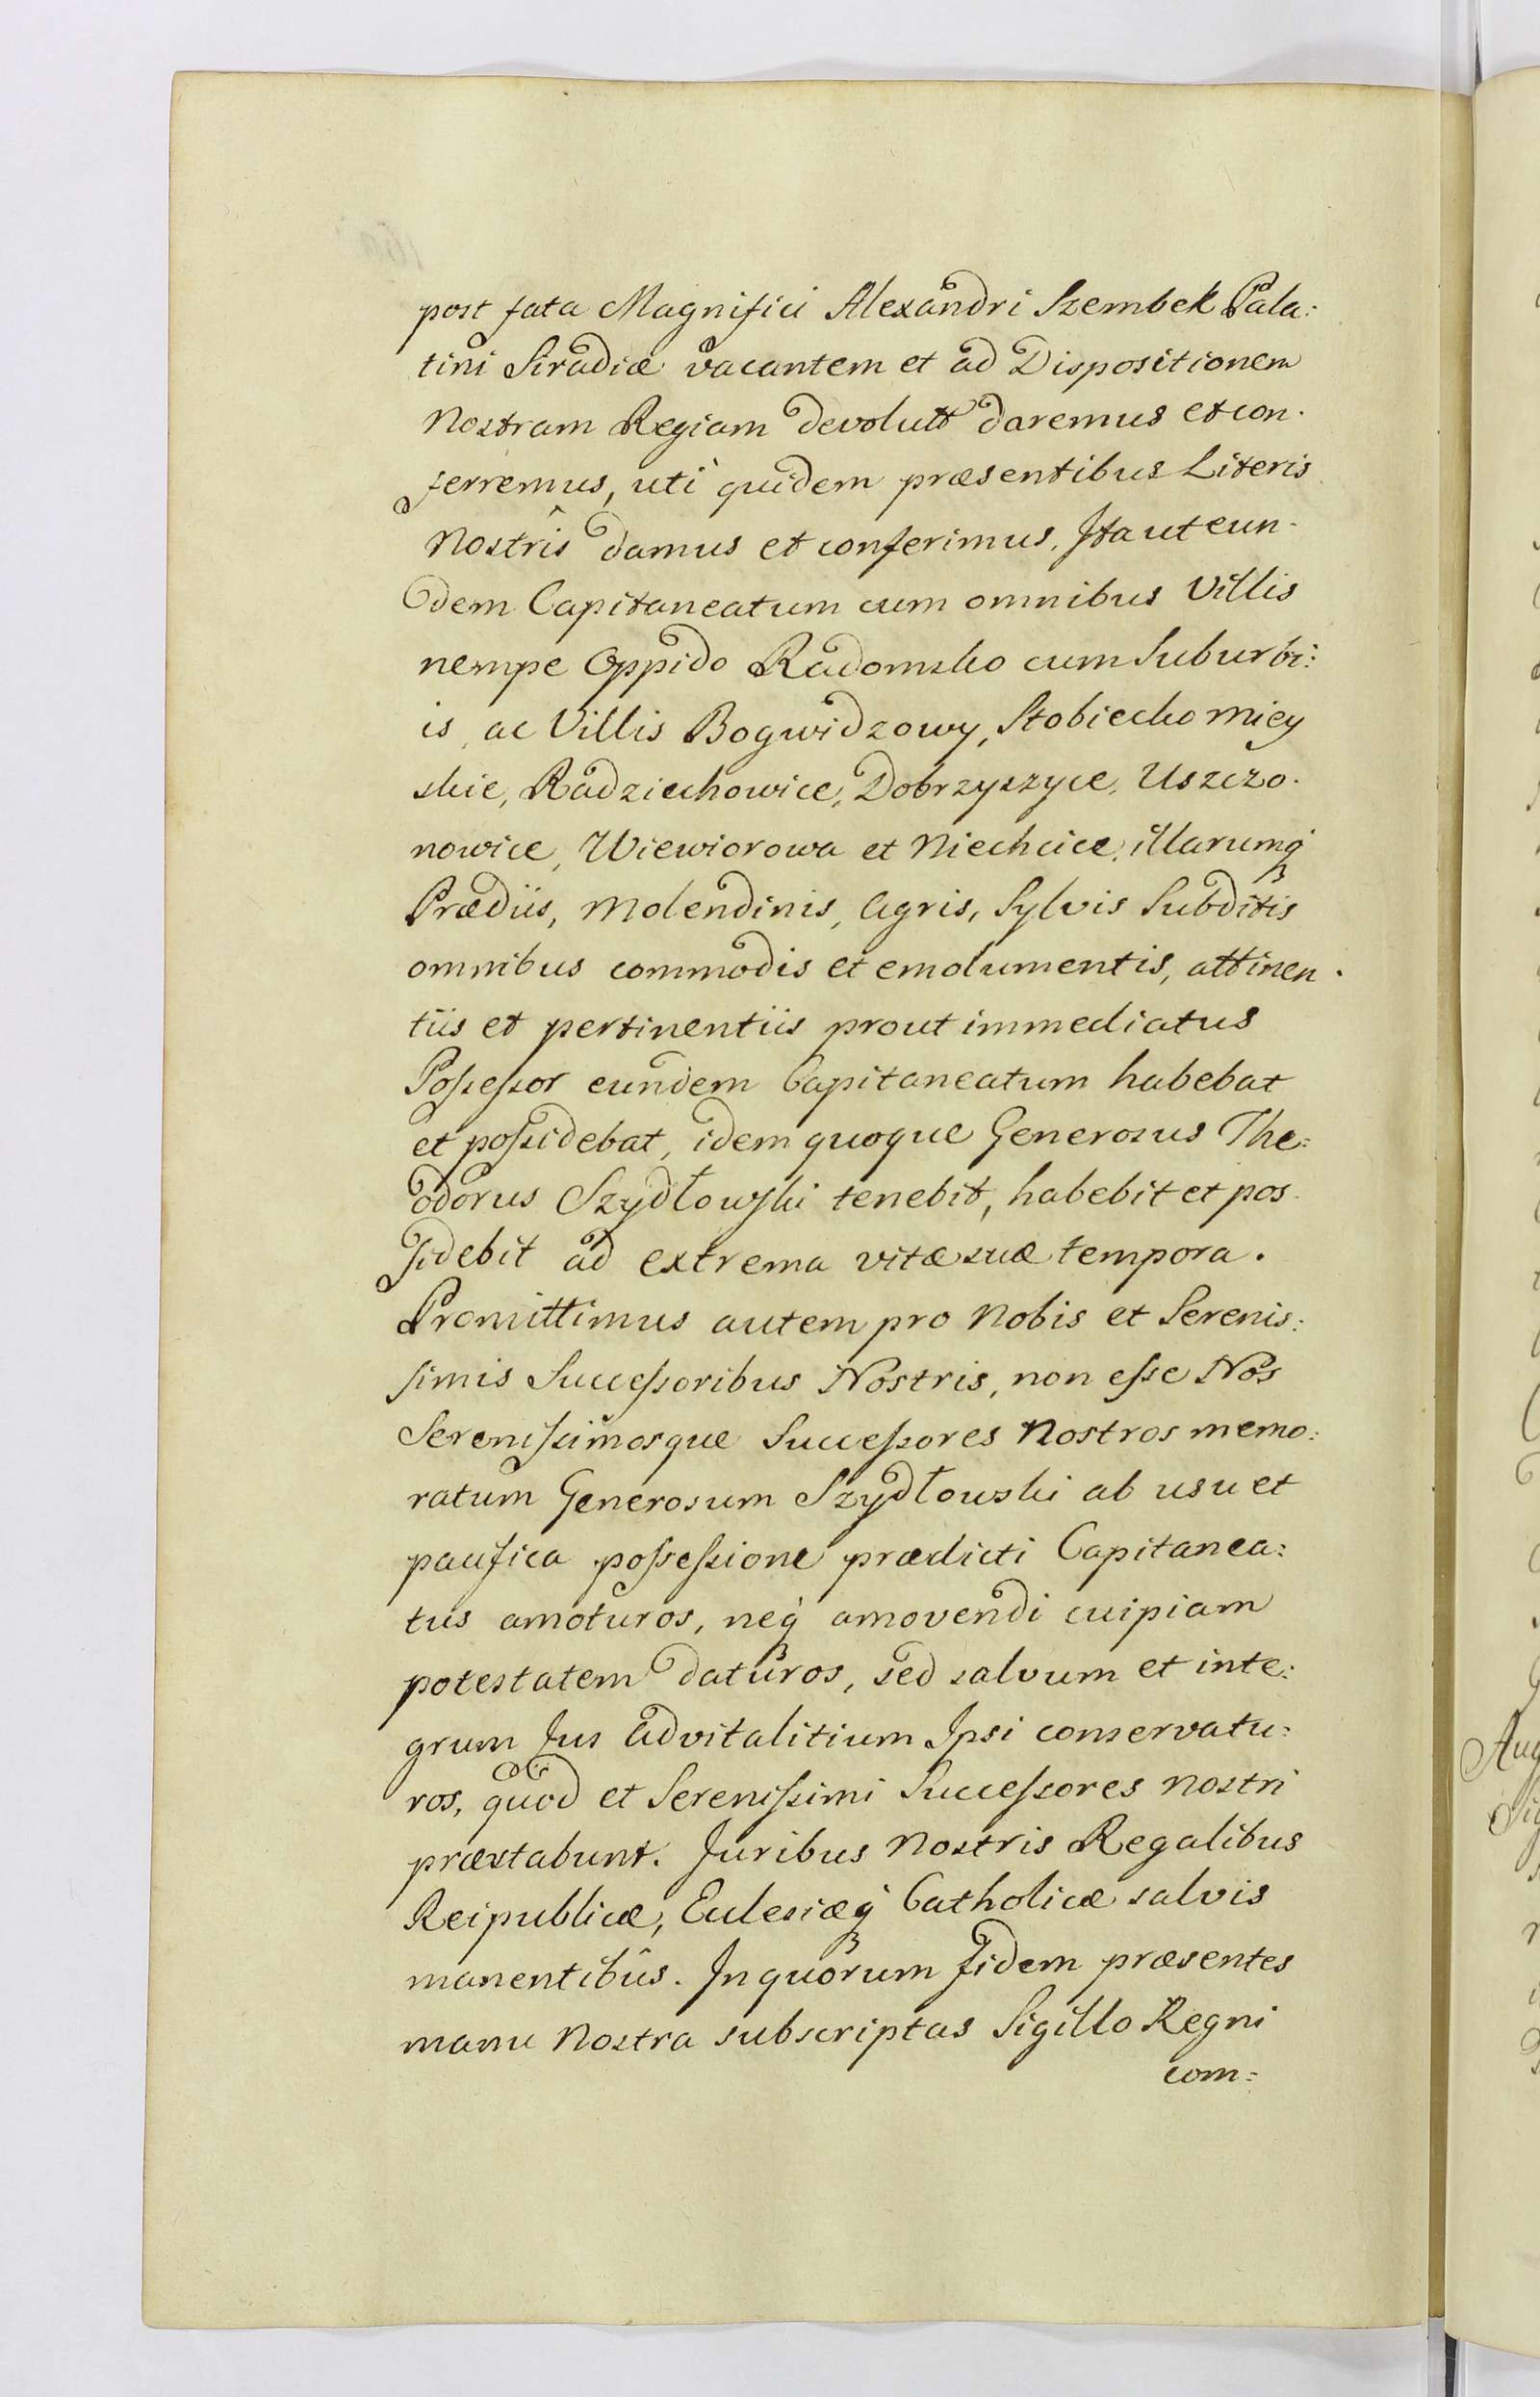 post fata Magnifici Alexandri Szembek Pala:
tini Siradiæ vacantem et ad Dispositionem
Nostram Regiam devolutt daremus et con.
ferremus, uti quidem præsentibus Literis
Nostris damus et conferimus. Ita ut eun.
dem Capitaneatum cum omnibus Villis
nempe Oppido Radomsko cum Suburbi:
is, ac Villis Bogwidzowy, Stobiecko Miey
skie, Radziechowice, Dobrzyszyce, Uszczo.
nowice, Wiewiorowa et Niechcice, illarumq3
Prædiis, Molendinis, Agris, Sylvis Subditis
omnibus commodis et emolumentis, attinen.
tiis et pertinentiis prout immediatus
Possessor eundem Capitaneatum habebat
et possidebat, idem quoque Generosus The:
odorus Szydłowski tenebit, habebit et pos
sidebit ad extrema vitæ suæ tempora.
Promittimus autem pro Nobis et Serenis:
simis Successoribus Nostris, non esse Nos
Serenissimosque Successores Nostros memo:
ratum Generosum Szydłowski ab usu et
pacifica possessione prædicti Capitanea:
tus amoturos, neq3 amovendi cuipiam
potestatem daturos, sed salvum et inte:
grum Jus Advitalitium Ipsi conservatu:
ros, quod et Serenissimi Successores Nostri
præstabunt. Juribus Nostris Regalibus
Reipublicæ, Eclesiæq3 Catholicæ salvis
manentibûs. In quorum fidem præsentes
manu Nostra subscriptas Sigillo Regni
com=
Aug
Sig